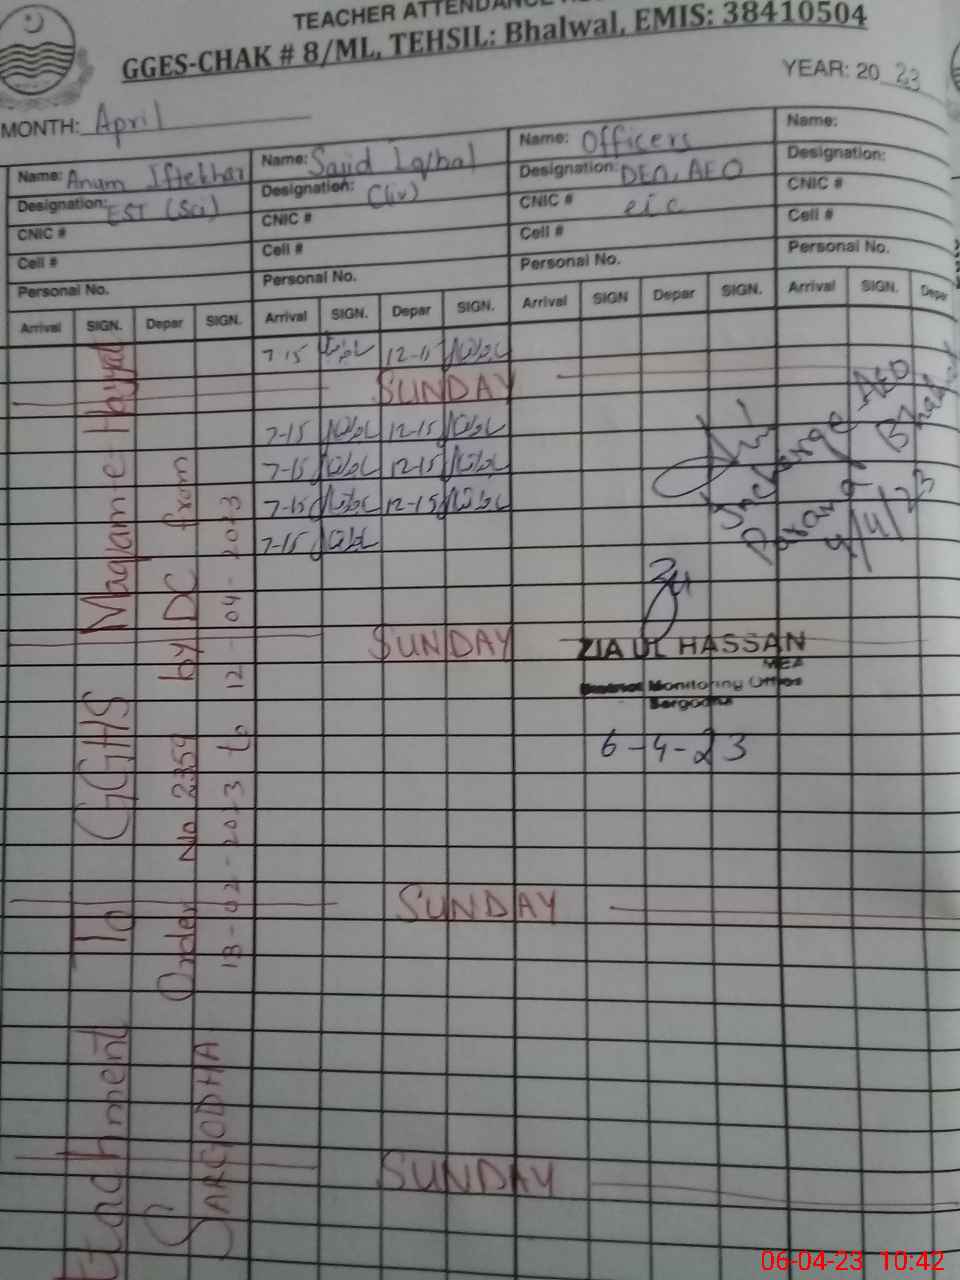 TEACHER ATTENDANCE
GGES-CHAK # 8/ML, TEHSIL: Bhalwal, EMIS: 38410504
YEAR: 2023
MONTH: April
Name: Anum Iftekhar Name: Sajid Iqbal Name: Officers Name:
Designation: EST (Sci) Designation: C(iv) Designation: DEO, AEO Designation:
CNIC # CNIC # CNIC # etc CNIC #
Cell # Cell # Cell # Cell #
Personal No. Personal No. Personal No. Personal No.
Arrival SIGN. Depar SIGN. Arrival SIGN. Depar SIGN. Arrival SIGN Depar SIGN. Arrival SIGN. Depar
7-15 12-15
SUNDAY
7-15 12-15
7-15 12-15
7-15 12-15
7-15
Incharge AEO
4/4/23
SUNDAY
ZIA UL HASSAN
MEA
District Monitoring Office
Sargodha
6-4-23
SUNDAY
SUNDAY
tachment To GGHS Maqame Hayyat
Order No 2359 by DC from
SARGODHA 13-02-2023 to 12-04-2023
06-04-23 10:42